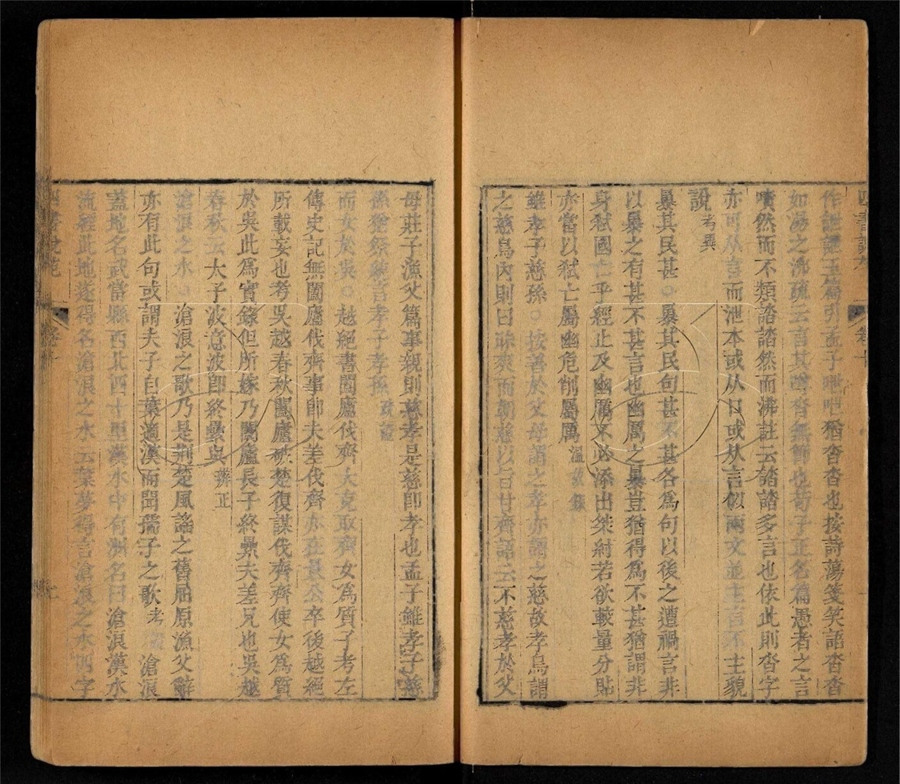 作泄謹玉篇引孟子呭呭猶沓沓也按詩蕩箋笑語沓沓
如湯之沸疏云言其噂沓無節也荀子正名篇愚者之言
嘖然而不類諮諮然而沸註云諮諮多言也依此則沓字
亦可从言而泄本或从口或从言似兩文並主言不主貌
說考異
暴其民甚○暴其民句甚不甚各為句以後之遭禍言非
以暴之有甚不甚言也幽厲之暴豈猶得為不甚猶謂非
身弒國亡乎經止及幽厲不必添出桀紂若欲較量分貼
亦當以弒亡屬幽危削屬厲溫故錄
雖孝子慈孫○按善於父母謂之孝亦謂之慈故孝烏謂
之慈烏內則曰昧爽而朝慈以旨甘齊語云不慈孝於父
母莊子漁父篇事親則慈孝是慈即孝也孟子雖孝子慈
孫猶祭統言孝子孝孫
而女於吳○越絕書闔廬伐齊大克取齊女為質子考左
傳史記無闔廬伐齊事即夫差伐齊亦在景公卒後越絕
所載妄也考吳越春秋闔廬破楚復謀伐齊齊使女為質
於吳此為實錄但所嫁乃闔廬長子終纍夫差兄也吳越
春秋云太子波意波即終纍與辨正
滄浪之水○滄浪之歌乃是荊楚風謠之舊屈原漁父辭
亦有此句或謂夫子自葉適漢而聞孺子之歌考 滄浪
蓋地名武當縣西北四十里漢水中有洲名曰滄浪漢水
流經此地遂得名滄浪之水云葉夢得言滄浪之水四字